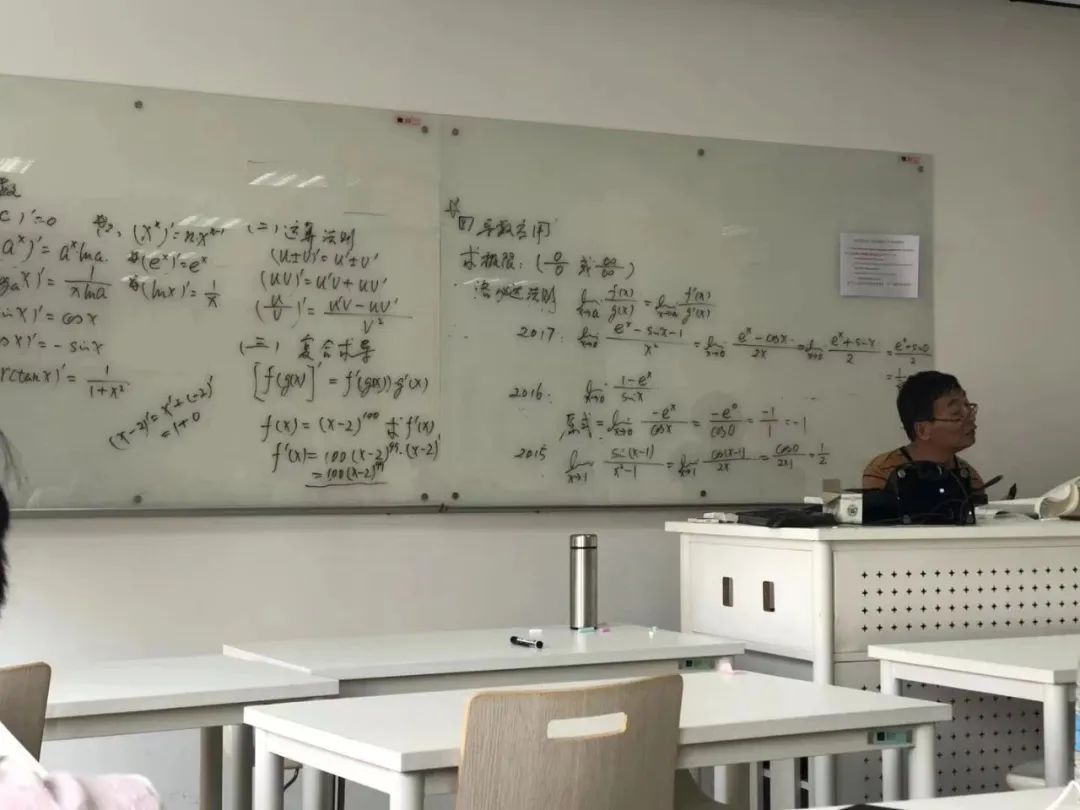 数
C)'=0
(a^x)'=a^x lna.
(x^x)'=nx^{x-1}
(e^x)'=e^x
(lnx)'=\frac{1}{x}
x)'=\frac{1}{xlna}
x)'=cosx
x)'=-sinx
rctanx)'=\frac{1}{1+x^2}
(x-2)'=x'+(-2)'
=1+0
(二)运算法则
(u±v)'=u'±v'
(uv)'=u'v+uv'
(\frac{u}{v})'=\frac{u'v-uv'}{v^2}
(三)复合求导
[f(g(x)]'=f'(g(x))·g'(x)
f(x)=(x-2)^{100} 求f'(x)
f'(x)=100(x-2)^{99}·(x-2)'
=100(x-2)^{99}
导数应用
求极限:(\frac{0}{0} 或 \frac{∞}{∞})
洛必达法则 lim_{x→a} \frac{f(x)}{g(x)}=lim_{x→a} \frac{f'(x)}{g'(x)}
2017: lim_{x→0} \frac{e^x-sinx-1}{x^2}=lim_{x→0} \frac{e^x-cosx}{2x}=lim_{x→0} \frac{e^x+sinx}{2}
2016: lim_{x→0} \frac{1-e^x}{sinx}
原式=lim_{x→0} \frac{-e^x}{cosx}=\frac{-e^0}{cos0}=\frac{-1}{1}=-1
2015 lim_{x→1} \frac{sin(x-1)}{x^2-1}=lim_{x→1} \frac{cos(x-1)}{2x}=\frac{cos0}{2×1}=\frac{1}{2}